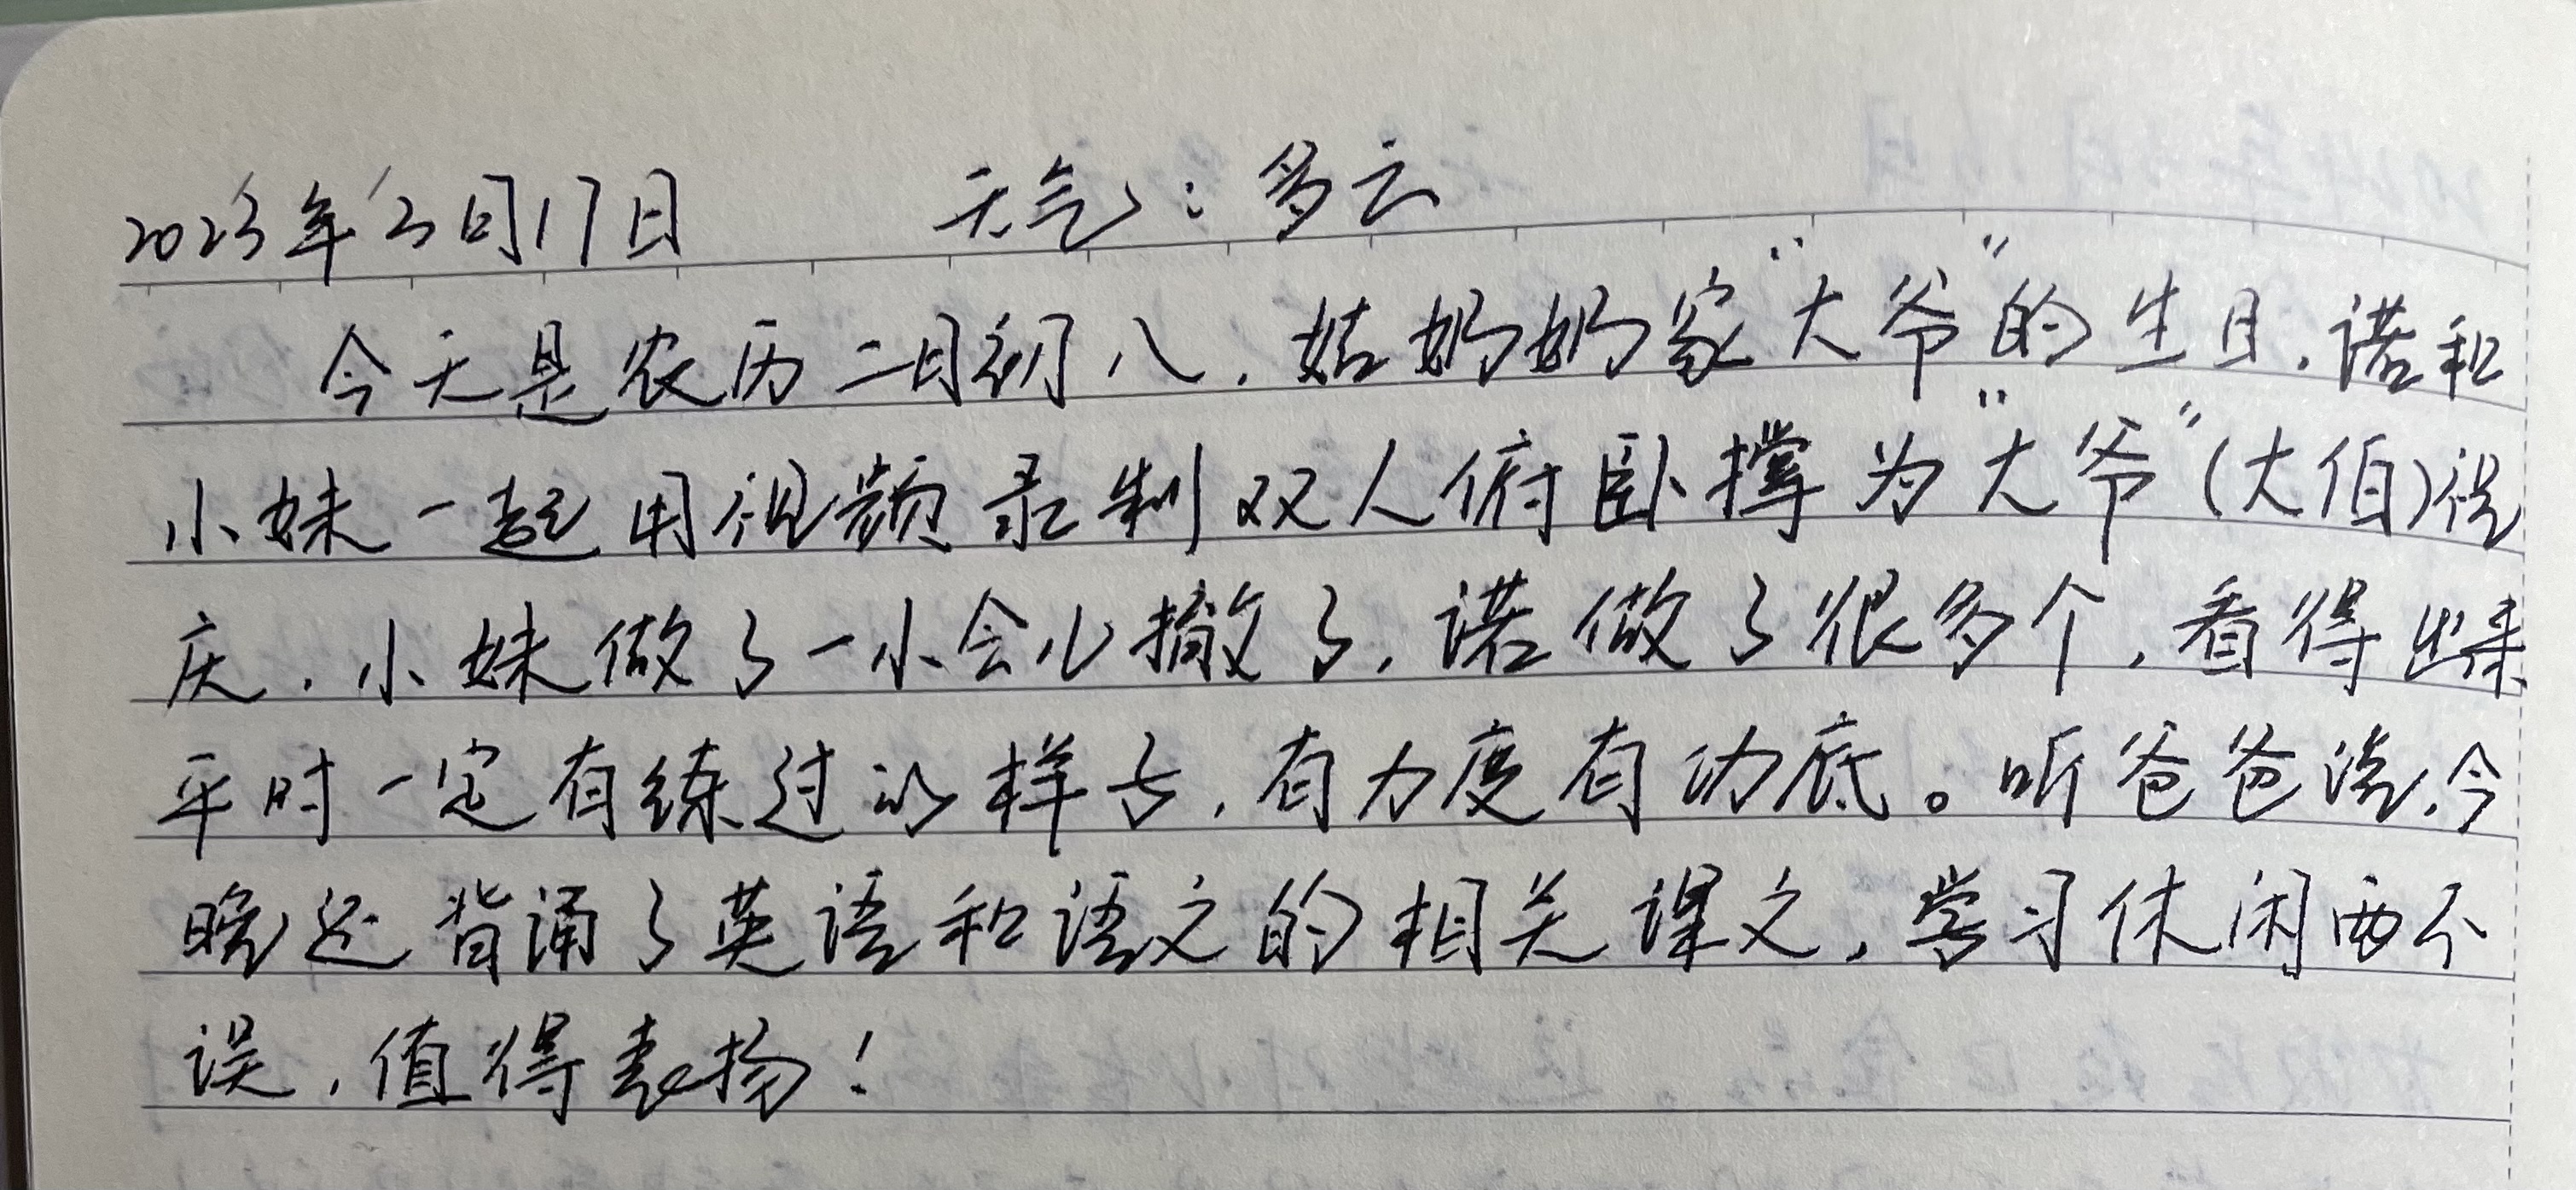 2023年3月17日 天气：多云
今天是农历二月初八，姑奶奶家“大爷”的生日，诺和
小妹一起用视频录制双人俯卧撑为“大爷”(大伯)祝
庆，小妹做了一小会儿撤了，诺做了很多个，看得出来
平时一定有练过的样子，有力度有功底。听爸爸说，今
晚还背诵了英语和语文的相关课文，学习休闲两不
误，值得表扬！